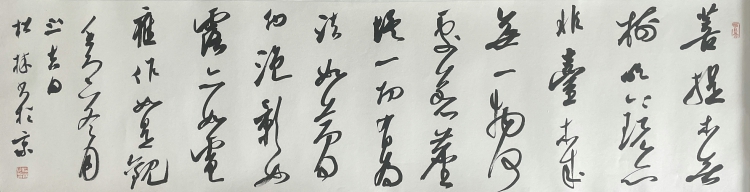 菩提本無
樹明鏡亦
非臺本來
無一物何
處惹塵
埃一切有為
法如夢
幻泡影如
露亦如電
應作如是觀
冬月
吉日
松 書於京